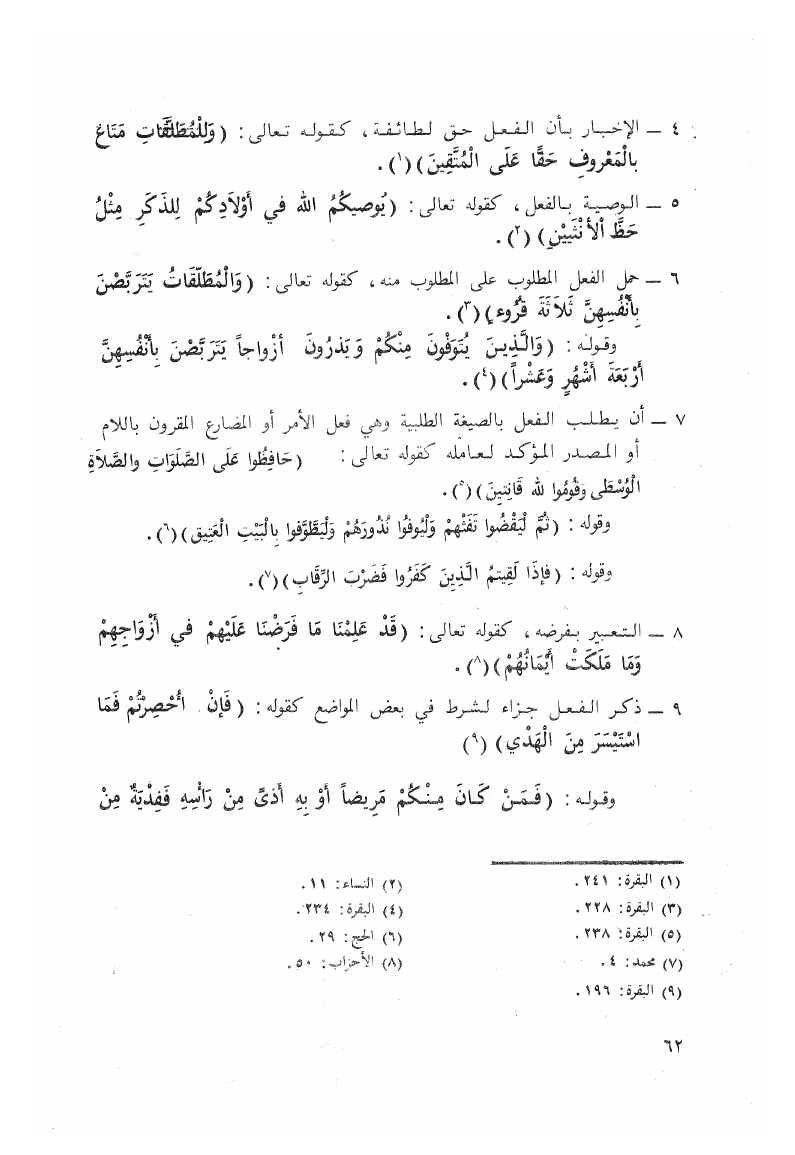 ٤ — الإخبار بأن الفعل حق لطائفة، كقوله تعالى: (وَلِلْمُطَلَّقَاتِ مَتَاعٌ
بِالْمَعْروفِ حَقًّا عَلَى الْمُتَّقِينَ)(١).
٥ — الوصية بالفعل، كقوله تعالى: (يُوصيكُمُ الله في أَوْلاَدِكُمْ لِلذَكَرِ مِثْلُ
حَظَّ اْلأنْثَيَيْنِ)(٢).
٦ — حمل الفعل المطلوب على المطلوب منه، كقوله تعالى: (وَالْمُطَلّقَاتُ يَتَرَبَّصْنَ
بِأَنْفُسِهِنَّ ثَلاَثَةَ قُرُوءٍ)(٣).
وقوله: (وَالَّذِينَ يُتَوَفّونَ مِنْكُمْ وَيَذَرُونَ أزْواجاً يَتَرَبَّصْنَ بِأَنْفُسِهِنَّ
أَرْبَعَةَ أَشْهُرٍ وَعَشْراً)(٤).
٧ — أن يطلب الفعل بالصيغة الطلبية وهي فعل الأمر أو المضارع المقرون باللام
أو المصدر المؤكد لعامله كقوله تعالى: (حَافِظُوا عَلَى الصَّلَوَاتِ والصَّلاَةِ
الْوُسْطَى وَقُومُوا لله قَانِتينَ)(٥).
وقوله: (ثُمَّ لْيَقْضُوا تَفَثَهُمْ وَلْيُوفُوا نُذُورَهُمْ وَلْيَطَّوَّفوا بِالْبَيْتِ الْعَتِيق)(٦).
وقوله: (فإذَا لَقِيتمُ الَّذِينَ كَفَرُوا فَضَرْبَ الرِّقَاب)(٧).
٨ — التعبير بفرضه، كقوله تعالى: (قَدْ عَلِمْنَا مَا فَرَضْنَا عَلَيْهِمْ في أَزْوَاجِهِمْ
وَمَا مَلَكَتْ أَيْمَانُهُمْ)(٨).
٩ — ذكر الفعل جزاء لشرط في بعض المواضع كقوله: (فَإِنْ أُحْصِرْتُمْ فَمَا
اسْتَيْسَرَ مِنَ الْهَدْي)(٩)
وقوله: (فَمَنْ كَانَ مِنْكُمْ مَرِيضاً أَوْ بِهِ أَذىً مِنْ رَأْسِهِ فَفِدْيَةٌ مِنْ
(١) البقرة: ٢٤١.
(٢) النساء: ١١.
(٣) البقرة: ٢٢٨.
(٤) البقرة: ٢٣٤.
(٥) البقرة: ٢٣٨.
(٦) الحج: ٢٩.
(٧) محمد: ٤.
(٨) الأحزاب: ٥٠.
(٩) البقرة: ١٩٦.
٦٢